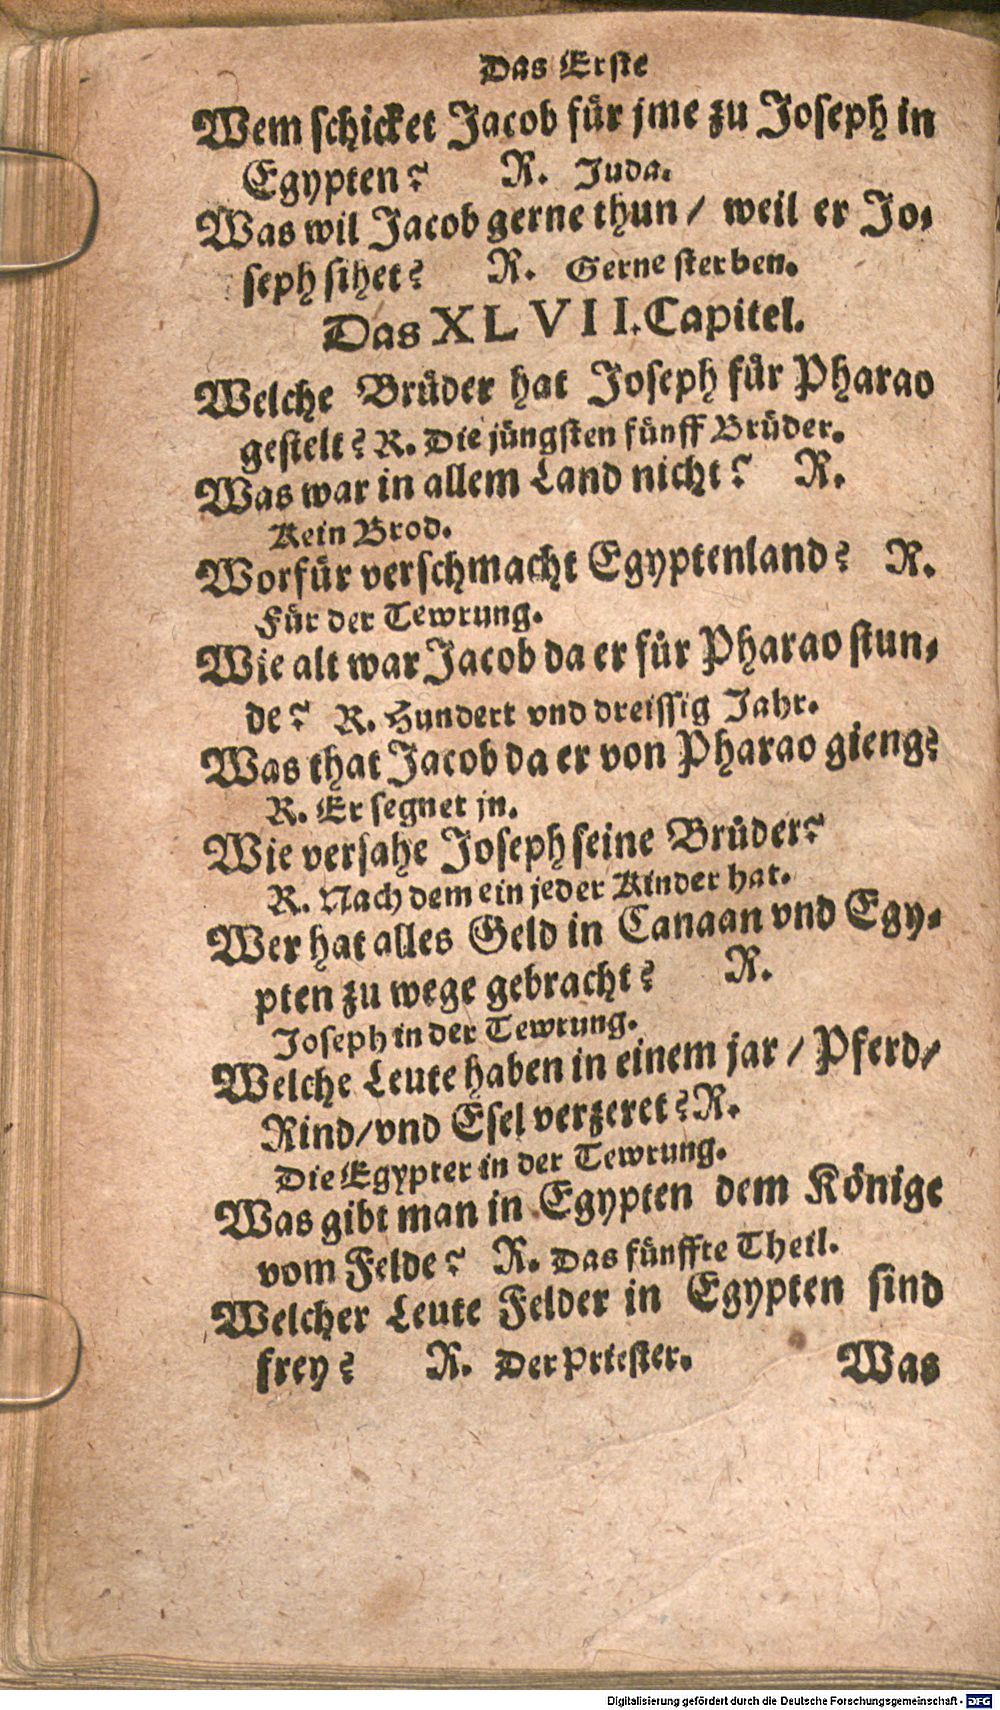 Das Erste
Wem schicket Jacob für jme zu Joseph in
Egypten? R. Juda.
Was wil Jacob gerne thun / weil er Jo-
seph sihet? R. Gerne sterben.
Das XLVII. Capitel.
Welche Brüder hat Joseph für Pharao
gestelt? R. Die jüngsten fünff Brüder.
Was war in allem Land nicht? R.
Kein Brod.
Worfür verschmacht Egyptenland? R.
Für der Tewrung.
Wie alt war Jacob da er für Pharao stun-
de? R. Hundert vnd dreissig Jahr.
Was that Jacob da er von Pharao gieng?
R. Er segnet jn.
Wie versahe Joseph seine Brüder?
R. Nach dem ein jeder Kinder hat.
Wer hat alles Geld in Canaan vnd Egy-
pten zu wege gebracht? R.
Joseph in der Tewrung.
Welche Leute haben in einem jar / Pferd/
Rind/vnd Esel verzeret? R.
Die Egypter in der Tewrung.
Was gibt man in Egypten dem Könige
vom Felde? R. Das fünffte Theil.
Welcher Leute Felder in Egypten sind
frey? R. Der Priester. Was
Digitalisierung gefördert durch die Deutsche Forschungsgemeinschaft - DFG